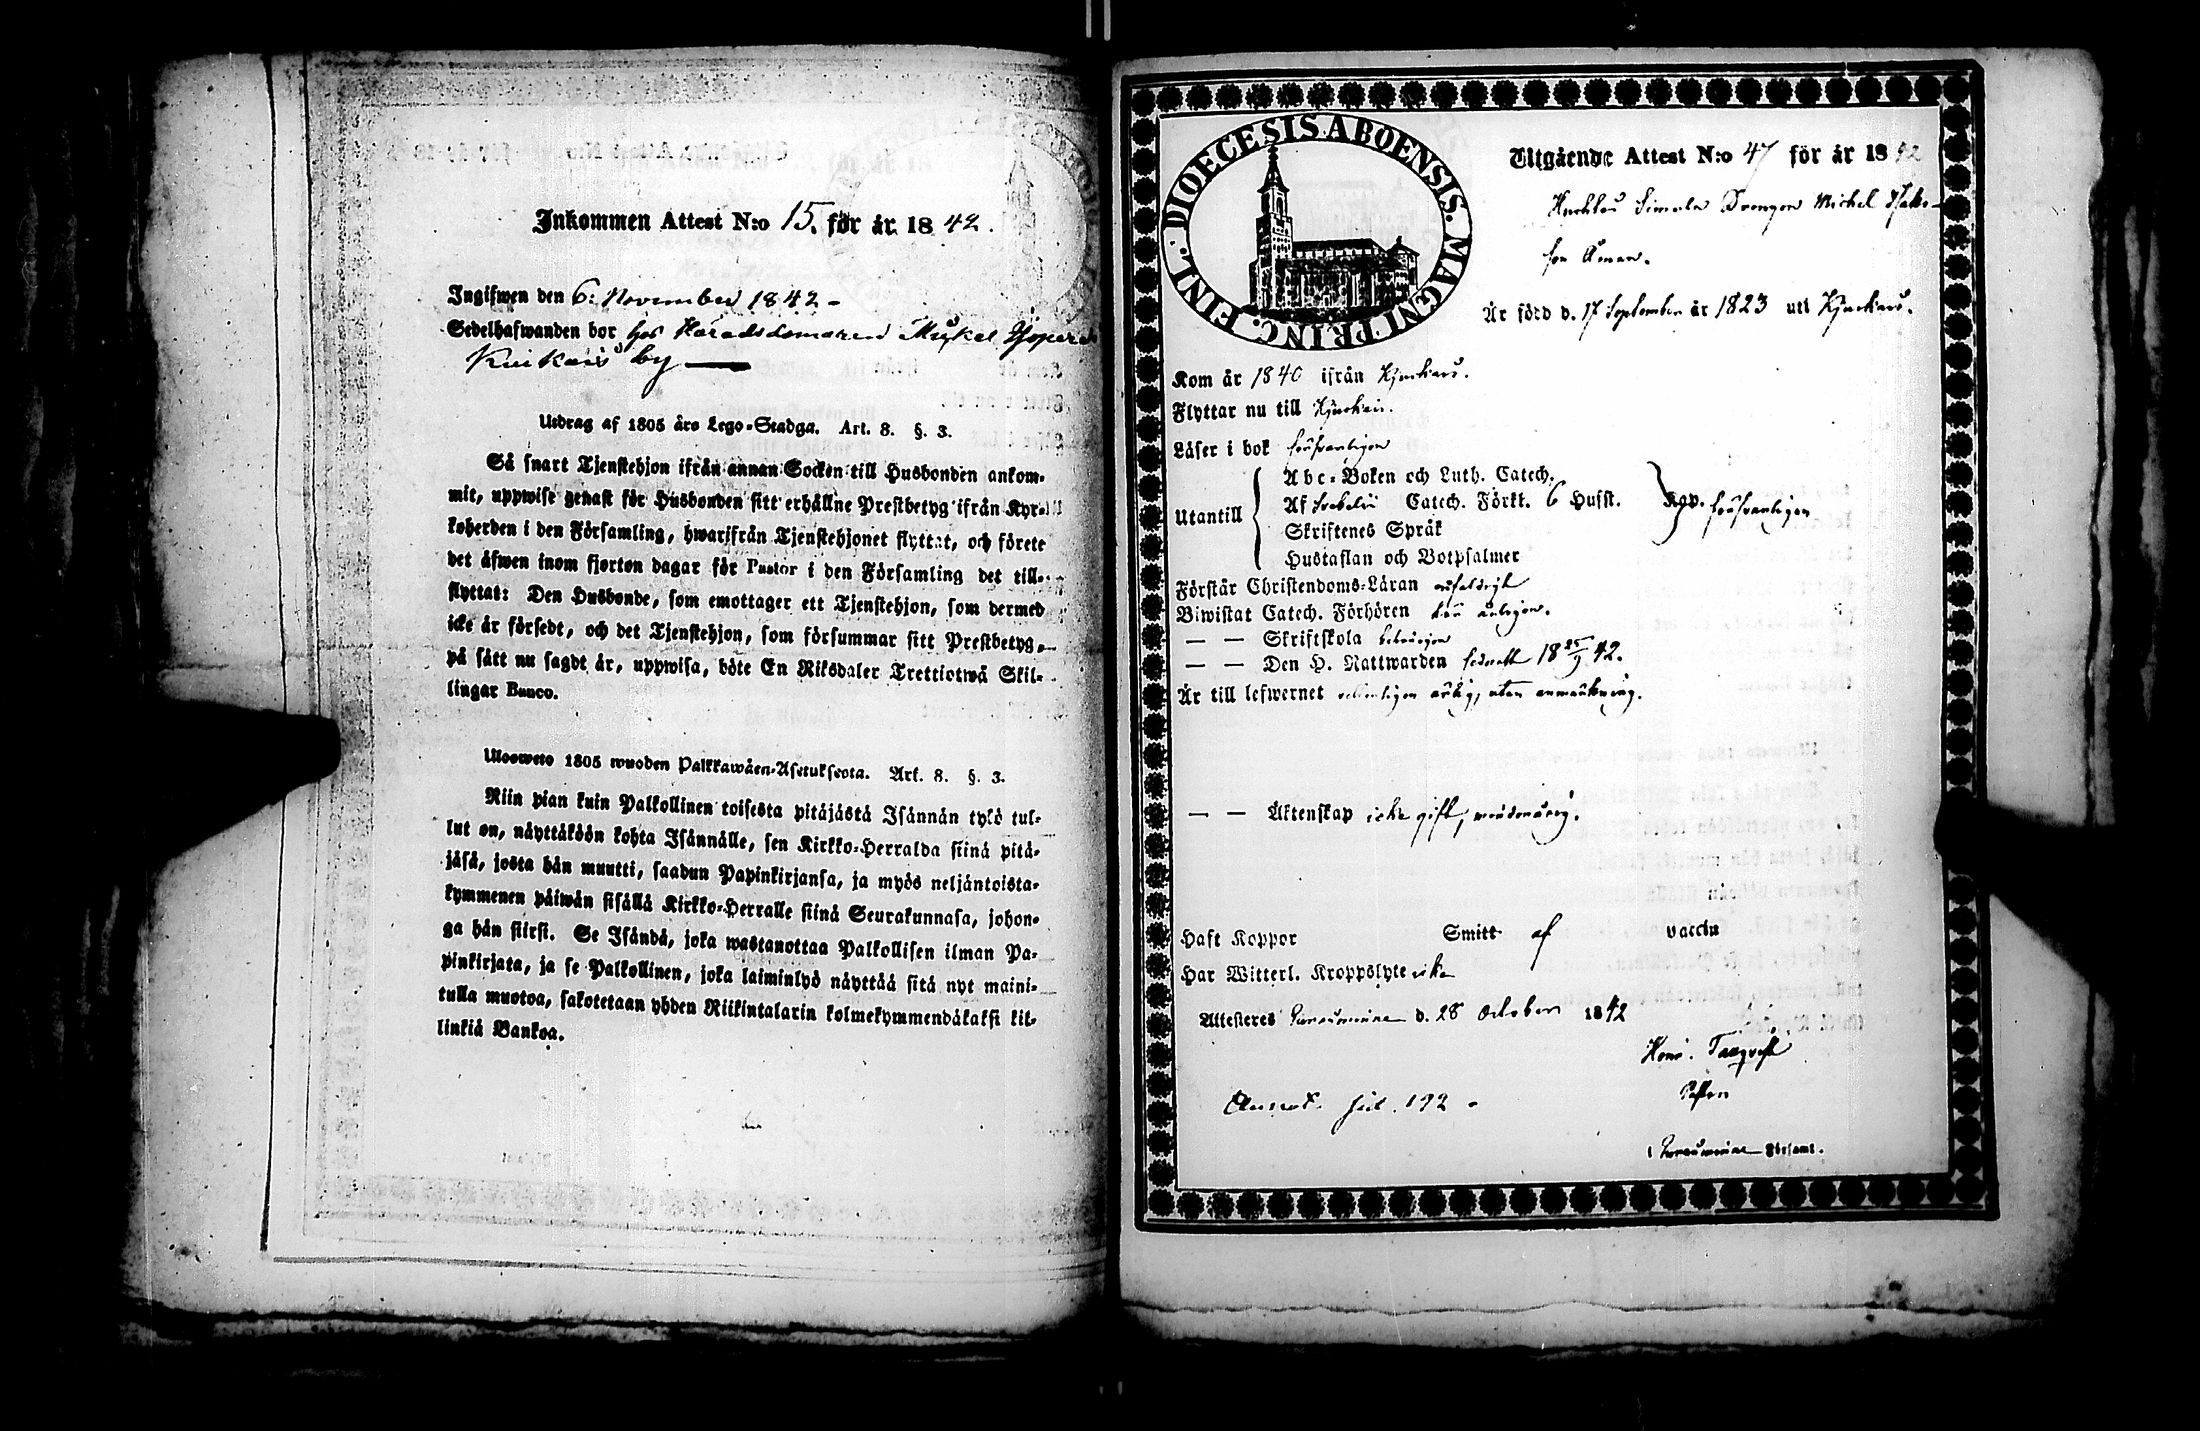 Inkommen Attest N:o 15. för år 1842.
Ingifwen den 6: November 1842 -
Sedelhafwanden bor hos Häradsdomaren Mickel
by
Utdrag af 1805 års Lego-Stadga. Art. 8. §. 3.
Så snart Tjenstehjon ifrån annan Socken till Husbonden ankom-
mit, uppwise genast för Husbonden sitt erhållne Prestbetyg ifrån Kyr-
koherden i den Församling, hwarifrån Tjenstehjonet flyttat, och förete
det äfwen inom fjorton dagar för Pastor i den Församling det till-
flyttat: Den Husbonde, som emottager ett Tjenstehjon, som dermed
icke är försedt, och det Tjenstehjon, som försummar sitt Prestbetyg,
på sätt nu sagdt är, uppwisa, böte En Riksdaler Trettiotwå Skil-
lingar Banco.
Uloswete 1805 wuoden Palkkawäen-Asetuksesta. Art. 8. §. 3.
Niin pian kuin Palkollinen toisesta pitäjästä Isännän tykö tul-
lut on, näyttäköön kohta Isännälle, sen Kirkko-Herralda siinä pitä-
jäsä, josta hän muutti, saadun Papinkirjansa, ja myös neljäntoista-
kymmenen päiwän sisällä Kirkko-Herralle siinä Seurakunnasa, johon-
ga hän siirsi. Se Isändä, joka wastanottaa Palkollisen ilman Pa-
pinkirjata, ja se Palkollinen, joka laiminlyö näyttää sitä nyt maini-
tulla muotoa, sakotetaan yhden Riikintalarin kolmekymmendäkaksi kil-
linkiä Bankoa.
DIOECESIS ABOENSIS. MAGNI PRINC. FINL.
Utgående Attest N:o 47 för år 1842
Simola Drengen Michel
son
Är född d. 17 September år 1823 uti Kjurkais.
Kom år 1840 ifrån Kjurkais.
Flyttar nu till Kjurkais.
Läser i bok försvarligen
Utantill
Abc-Boken och Luth. Catech.
Af Svebelii Catech. Förkl. 6 Hufst.
Skriftenes Språk
Hustaflan och Botpsalmer
försvarligen
Förstår Christendoms-Läran enfaldigt
Biwistat Catech. Förhören
— — Skriftskola
— — Den H. Nattwarden senast 18 25/9 42.
Är till lefwernet ärlig, utan anmärkning.
— — Äktenskap icke gift,
Haft Koppor Smitt af vaccin
Har Witterl. Kroppslyte icke
Attesteres d. 28 October 1842
Pastor
i Församl.
Annot. fol. 192 -